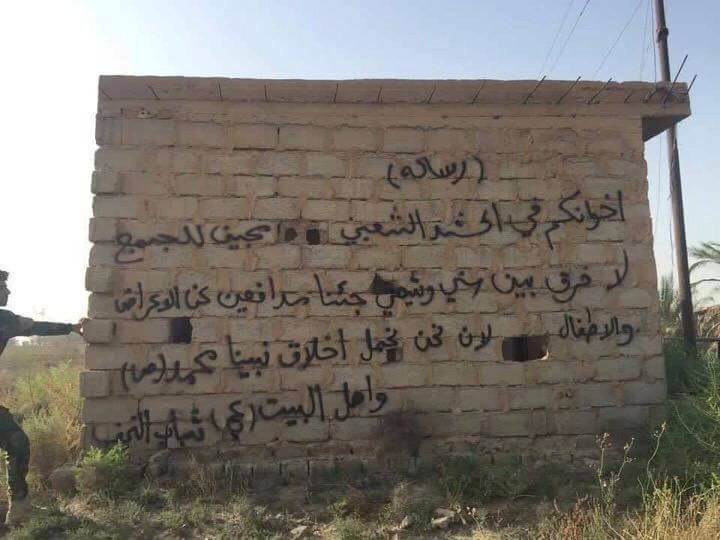 (رساله)
اخوانكم في الحشد الشعبي محبين للجميع
لا فرق بين سني وشيعي جئنا مدافعين عن الاعراض
والاطفال لان نحن نحمل اخلاق نبينا محمد (ص)
واهل البيت (ع) شباب النجف